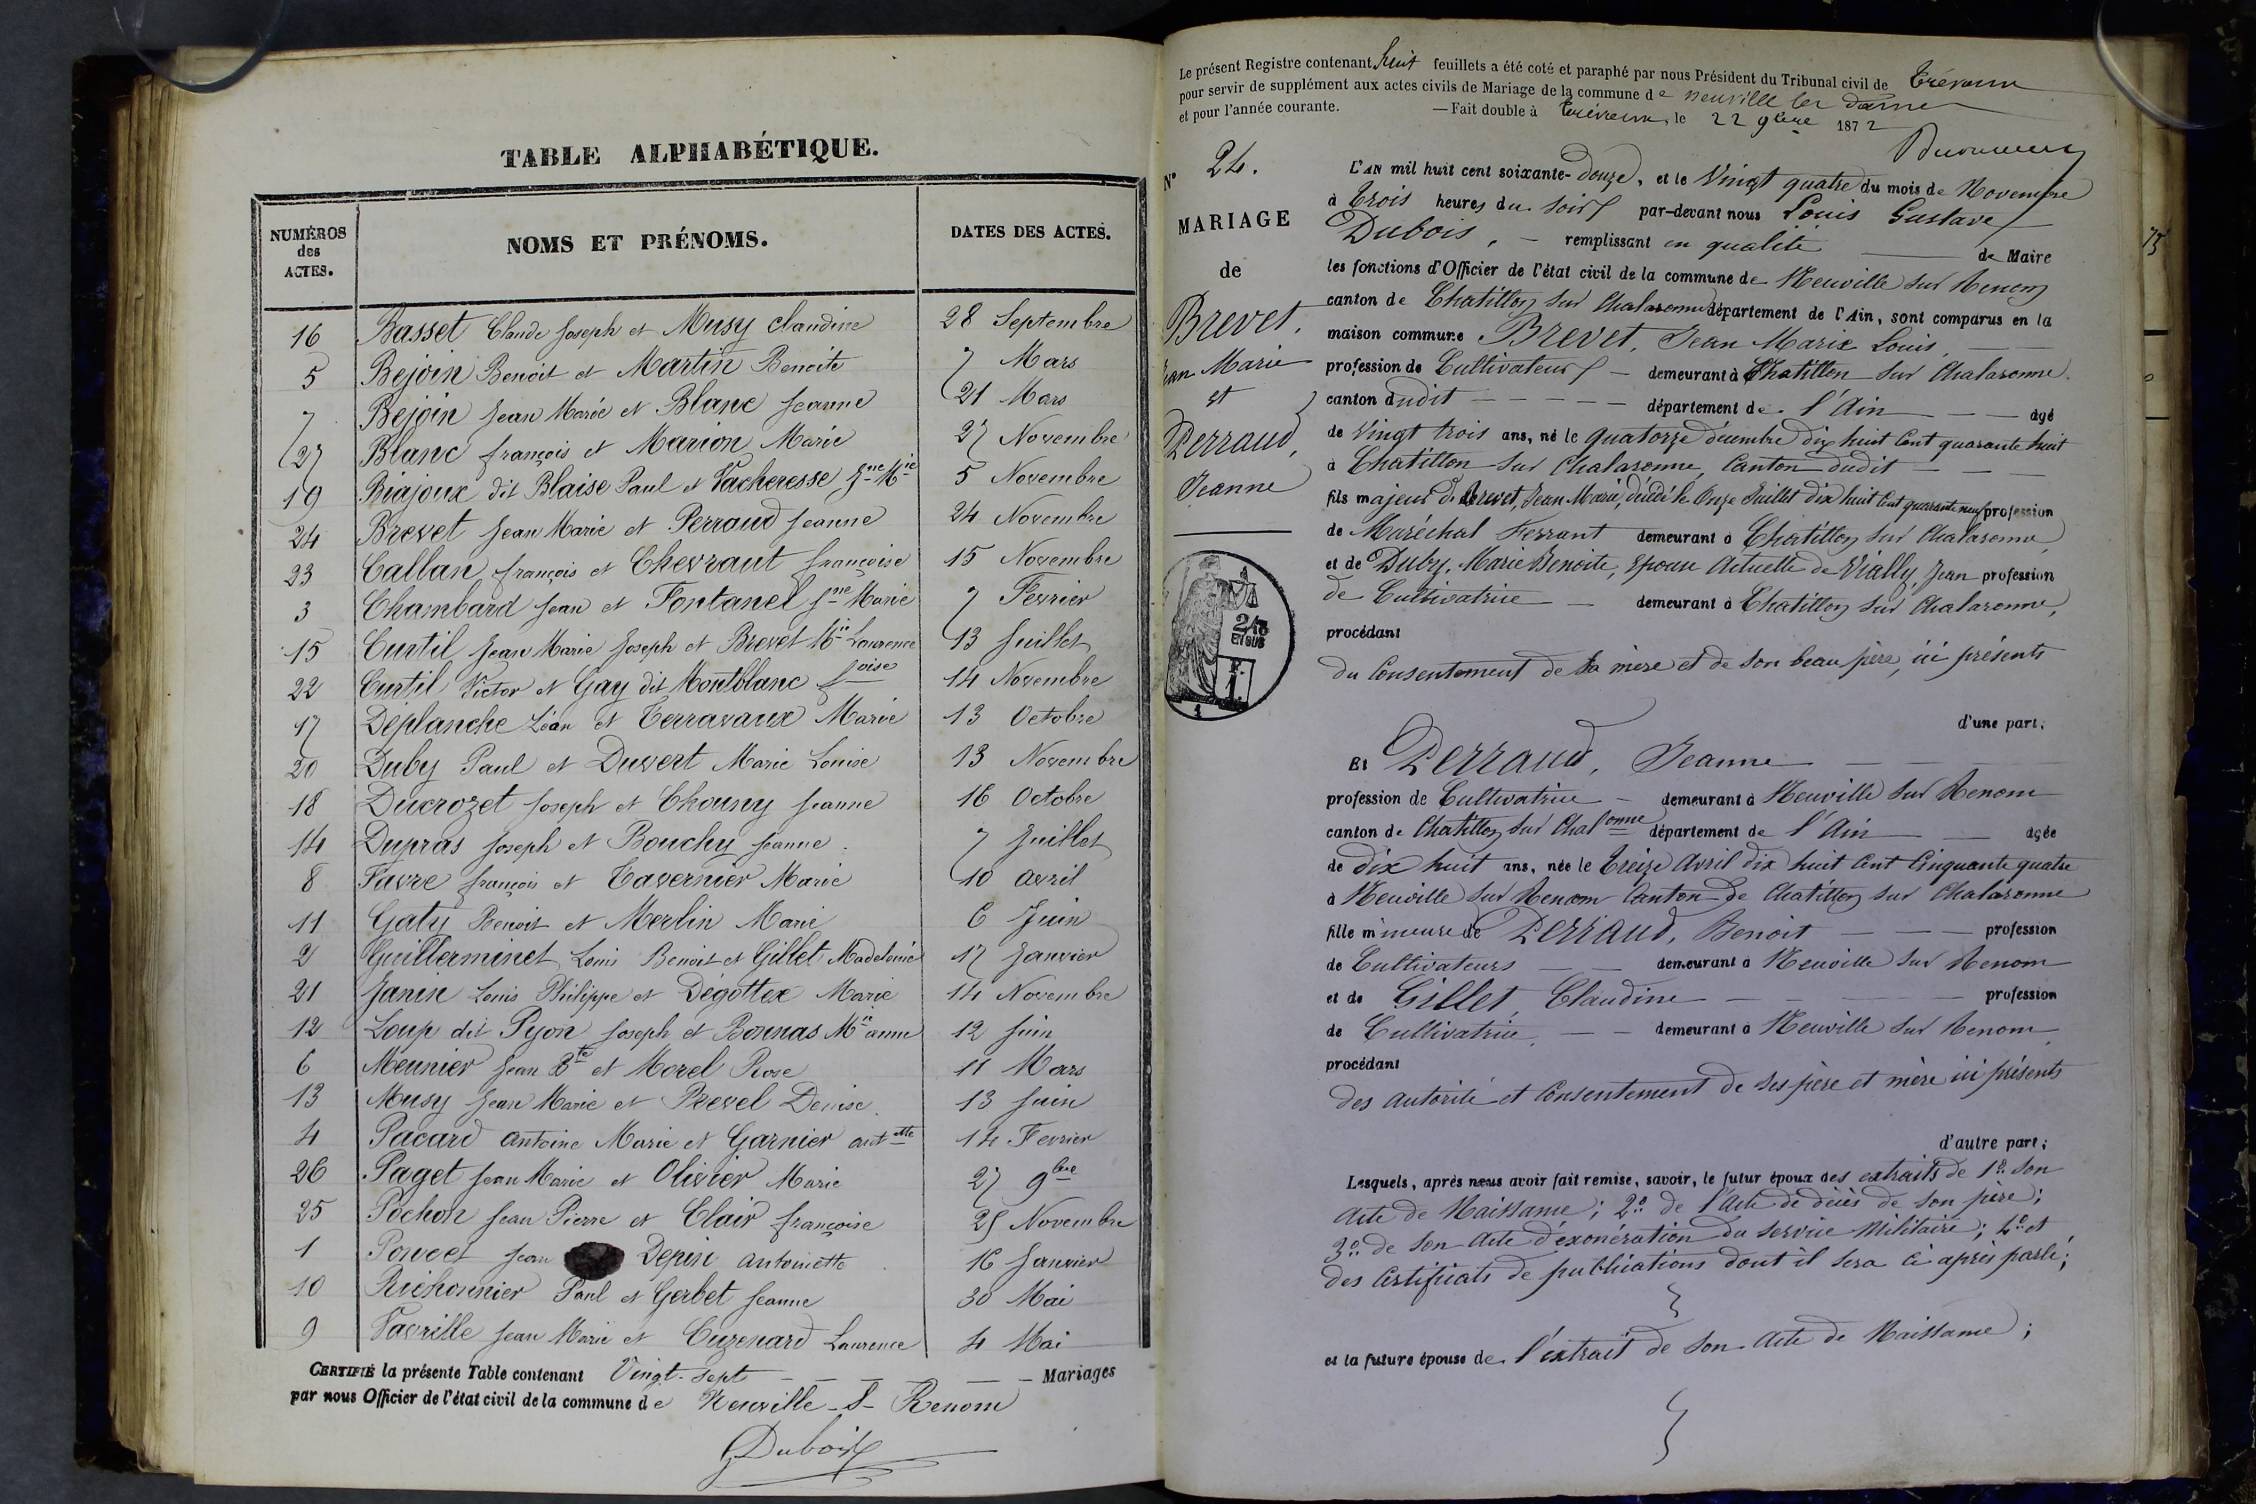 TABLE ALPHABÉTIQUE.
NUMÉROS des ACTES.
NOMS ET PRÉNOMS.
DATES DES ACTES.
16 Basset Claude Joseph et Musy Claudine 28 Septembre
5 Bejoin Benoit et Martin Benoite 7 Mars
7 Bejoin Jean Marie et Blanc Jeanne 21 Mars
27 Blanc françois et Marion Marie 27 Novembre
19 Biajoux dit Blaise Paul et Vacheresse Jne Mie 5 Novembre
24 Brevet Jean Marie et Perraud Jeanne 24 Novembre
23 Callan françois et Chevraut françoise 15 Novembre
3 Chambard Jean et Fontanel Jne Marie 7 Fevrier
15 Curtil Jean Marie Joseph et Brevet Mie Laurence 13 Juillet
22 Curtil Victor et Gay dit Montblanc foise 14 Novembre
17 Déplanche Léan et Terravaux Marie 13 Octobre
20 Duby Paul et Duvert Marie Louise 13 Novembre
18 Ducrozet Joseph et Chouny Jeanne 16 Octobre
14 Dupras Joseph et Bouchy Jeanne. 7 Juillet
8 Favre françois et Tavernier Marie 10 avril
11 Gaty Benoit et Merlin Marie 6 Juin
2 Guillerminet Louis Benoit et Gillet Madeleine 17 Janvier
21 Janin Louis Philippe et Dégottex Marie 14 Novembre
12 Loup dit Pyon Joseph et Bonnas Mie anne 12 Juin
6 Meunier Jean Bte et Morel Rose 11 Mars
13 Musy Jean Marie et Prevel Denise. 13 Juin
4 Pacard Antoine Marie et Garnier antette 14 Fevrier
26 Paget Jean Marie et Olivier Marie 27 9bre
25 Pochon Jean Pierre et Clair françoise 25 Novembre
1 Poncet Jean Depin Antoinette 16 Janvier
10 Richonnier Paul et Gerbet Jeanne 30 Mai
9 Favrille Jean Marie et Cuzenard Laurence 4 Mai
CERTIFIÉ la présente Table contenant Vingt-sept Mariages
par nous Officier de l'état civil de la commune de Neuville-S-Renom
GDubois
Le présent Registre contenant huit feuillets a été coté et paraphé par nous Président du Tribunal civil de Trévoux
pour servir de supplément aux actes civils de Mariage de la commune de neuville les dames
et pour l'année courante. — Fait double à Trévoux, le 22 9bre 1872
N° 24.
MARIAGE
de
Brevet,
Jean Marie
et
Perraud,
Jeanne
2/10
EN SUS
1
L'AN mil huit cent soixante-douze, et le Vingt quatre du mois de Novembre
à Trois heures du soir par-devant nous Louis Gustave
Dubois, — remplissant en qualité de Maire
les fonctions d'Officier de l'état civil de la commune de Neuville sur Renom
canton de Chatillon sur Chalaronne département de l'Ain, sont comparus en la
maison commune Brevet, Jean Marie Louis,
profession de Cultivateur — demeurant à Chatillon sur Chalaronne.
canton dudit département de l'Ain agé
de Vingt trois ans, né le quatorze décembre dix huit Cent quarante huit
à Chatillon sur Chalaronne, Canton dudit
fils majeur de Brevet, Jean Marie, décédé le Onze Juillet dix huit Cent quarante neuf profession
de Maréchal Ferrant demeurant à Chatillon sur Chalaronne,
et de Duby, Marie Benoite, Epouse Actuelle de Vially, Jean profession
de Cultivatrice — demeurant à Chatillon sur Chalaronne,
procédant
du Consentement de sa mère et de son beau père, ici présents
d'une part;
Et Perraud, Jeanne
profession de Cultivatrice — demeurant à Neuville sur Renom
canton de Chatillon sur Chalonne département de l'Ain agée
de dix huit ans, née le Treize Avril dix huit Cent Cinquante quatre
à Neuville sur Renom Canton de Chatillon sur Chalaronne
fille mineure de Perraud, Benoit profession
de Cultivateurs demeurant à Neuville sur Renom
et de Gillet, Claudine profession
de Cultivatrice, demeurant à Neuville sur Renom,
procédant
des autorité et Consentement de ses père et mère ici présents
d'autre part;
Lesquels, après nous avoir fait remise, savoir, le futur époux des extraits de 1° son
Acte de Naissance; 2° de l'Acte de décès de son père;
3° de son Acte d'exonération du service Militaire; 4° et
des Certificats de publications dont il sera ci après parlé;
et la future épouse de l'extrait de son Acte de Naissance;